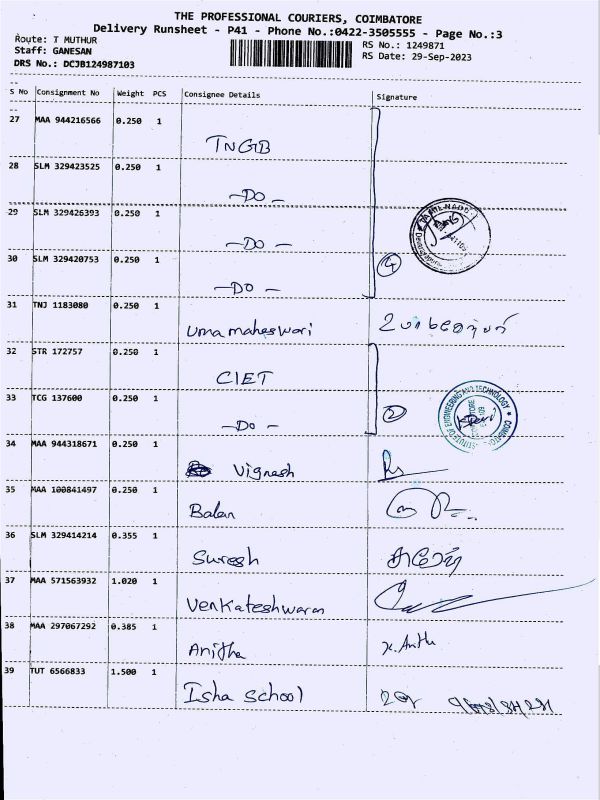 THE PROFESSIONAL COURIERS, COIMBATORE
Delivery Runsheet - P41 - Phone No.:0422-3505555 - Page No.:3
Route: T MUTHUR
RS No.: 1249871
Staff: GANESAN
RS Date: 29-Sep-2023
DRS No.: DCJB124987103
S No Consignment No Weight PCS Consignee Details Signature
27 MAA 944216566 0.250 1
TNGB
28 SLM 329423525 0.250 1
-Do-
29 SLM 329426393 0.250 1
-Do-
30 SLM 329420753 0.250 1
4
-Do-
31 TNJ 1183080 0.250 1
Umamaheswari உமாமகேஸ்வரி
32 STR 172757 0.250 1
CIET
33 TCG 137600 0.250 1
2
-Do-
34 MAA 944318671 0.250 1
Vignesh
35 MAA 100841497 0.250 1
Balan
36 SLM 329414214 0.355 1
Suresh சுரேஷ்
37 MAA 571563932 1.020 1
Venkateshwaran
38 MAA 297067292 0.385 1
Anitha
39 TUT 6566833 1.500 1
Isha School